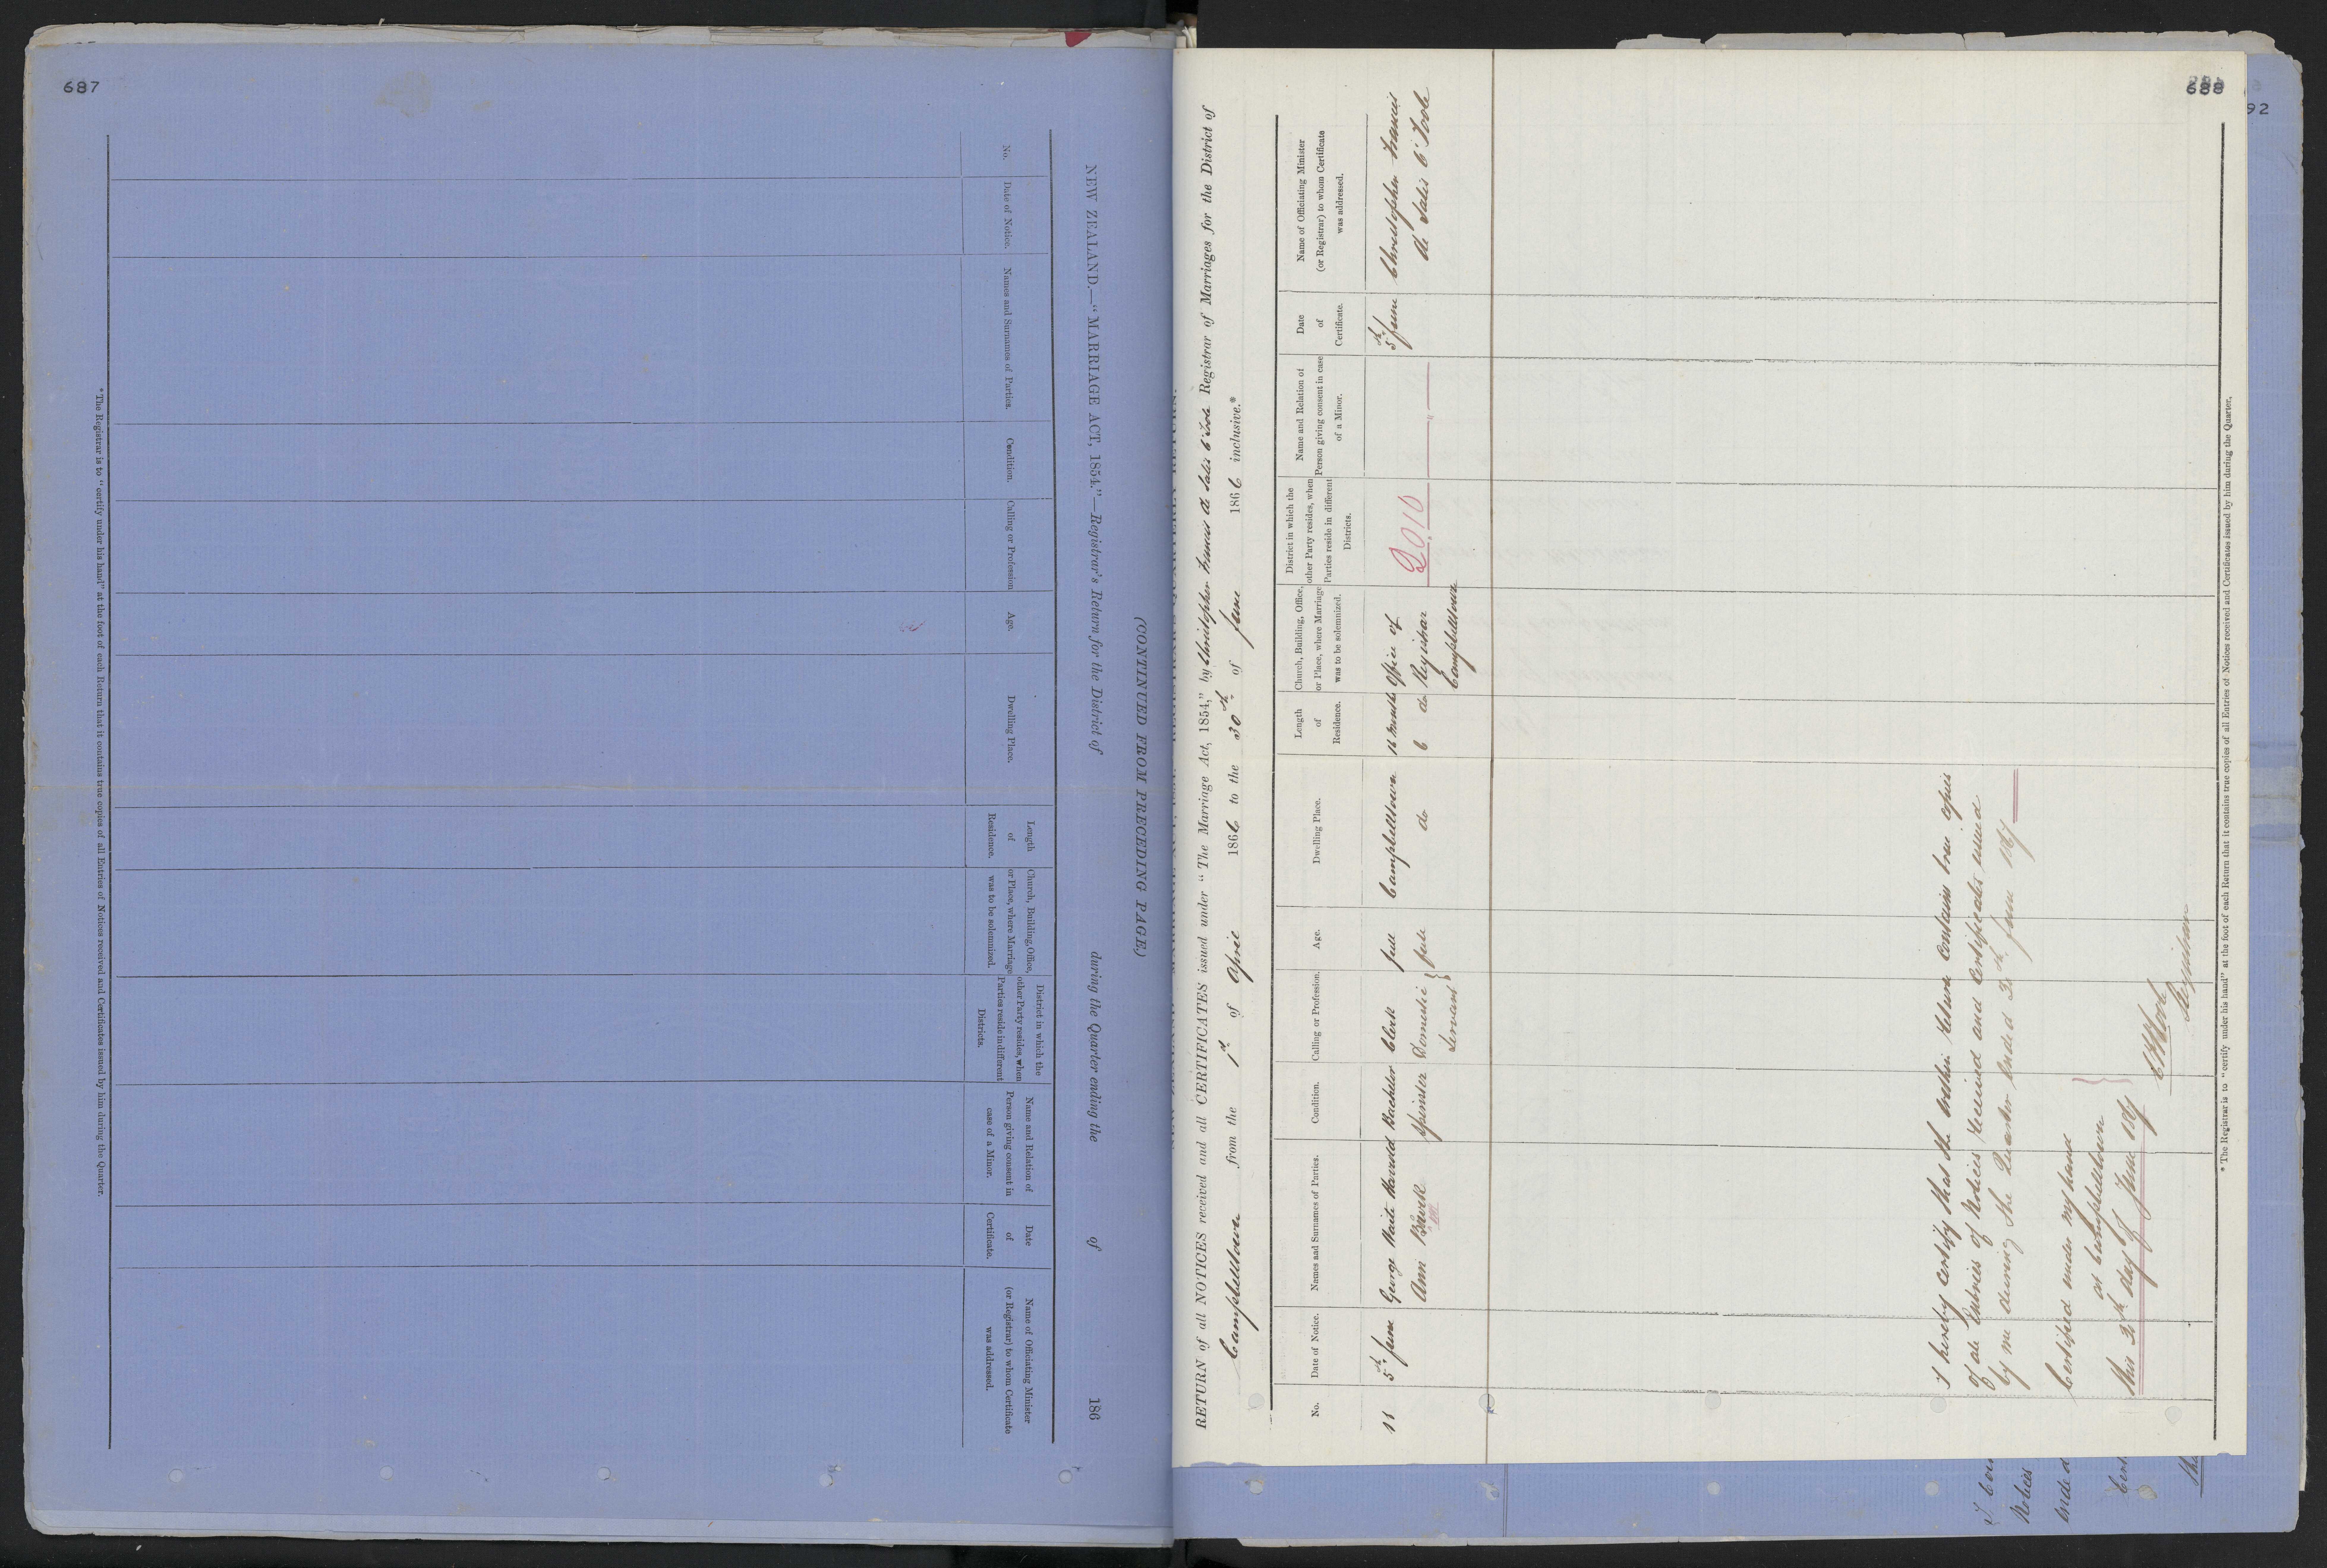 687
(CONTINUED FROM PRECEDING PAGE.)
NEW ZEALAND.—"MARRIAGE ACT, 1854."—Registrar's Return for the District of during the Quarter ending the of 186
No.
Date of Notice.
Names and Surnames of Parties.
Condition.
Calling or Profession
Age.
Dwelling Place.
Length
of
Residence.
Church, Building, Office,
or Place, where Marriage
was to be solemnized.
District in which the
other Party resides, when
Parties reside in different
Districts.
Name and Relation of
Person giving consent in
case of a Minor.
Date
of
Certificate.
Name of Officiating Minister
(or Registrar) to whom Certificate
was addressed.
* The Registrar is to "certify under his hand" at the foot of each Return that it contains true copies of all Entries of Notices received and Certificates issued by him during the Quarter.
688
92
RETURN of all NOTICES received and all CERTIFICATES issued under "The Marriage Act, 1854," by Christopher Francis de Salis O'Toole Registrar of Marriages for the District of
Campbelltown from the 1st of April 1866 to the 30th of June 1866 inclusive.*
No.
Date of Notice.
Names and Surnames of Parties.
Condition.
Calling or Profession.
Age.
Dwelling Place.
Length
of
Residence.
Church, Building, Office,
or Place, where Marriage
was to be solemnized.
District in which the
other Party resides, when
Parties reside in different
Districts.
Name and Relation of
Person giving consent in case
of a Minor.
Date
of
Certificate.
Name of Officiating Minister
(or Registrar) to whom Certificate
was addressed.
5th June George Waite Bachelor Clerk full Campbelltown 16 Months Office of 5th June Christopher Francis
Ann Spinster Domestic full do 6 do Registrar de Salis O'Toole
Servant Campbelltown
2010
I hereby certify that the within Return contains true copies
of all Entries of Notices received and Certificates issued
by me during the Quarter ended June
Certified under my hand
at Campbelltown
this day of June
Registrar
* The Registrar is to "certify under his hand" at the foot of each Return that it contains true copies of all Entries of Notices received and Certificates issued by him during the Quarter.
Notices